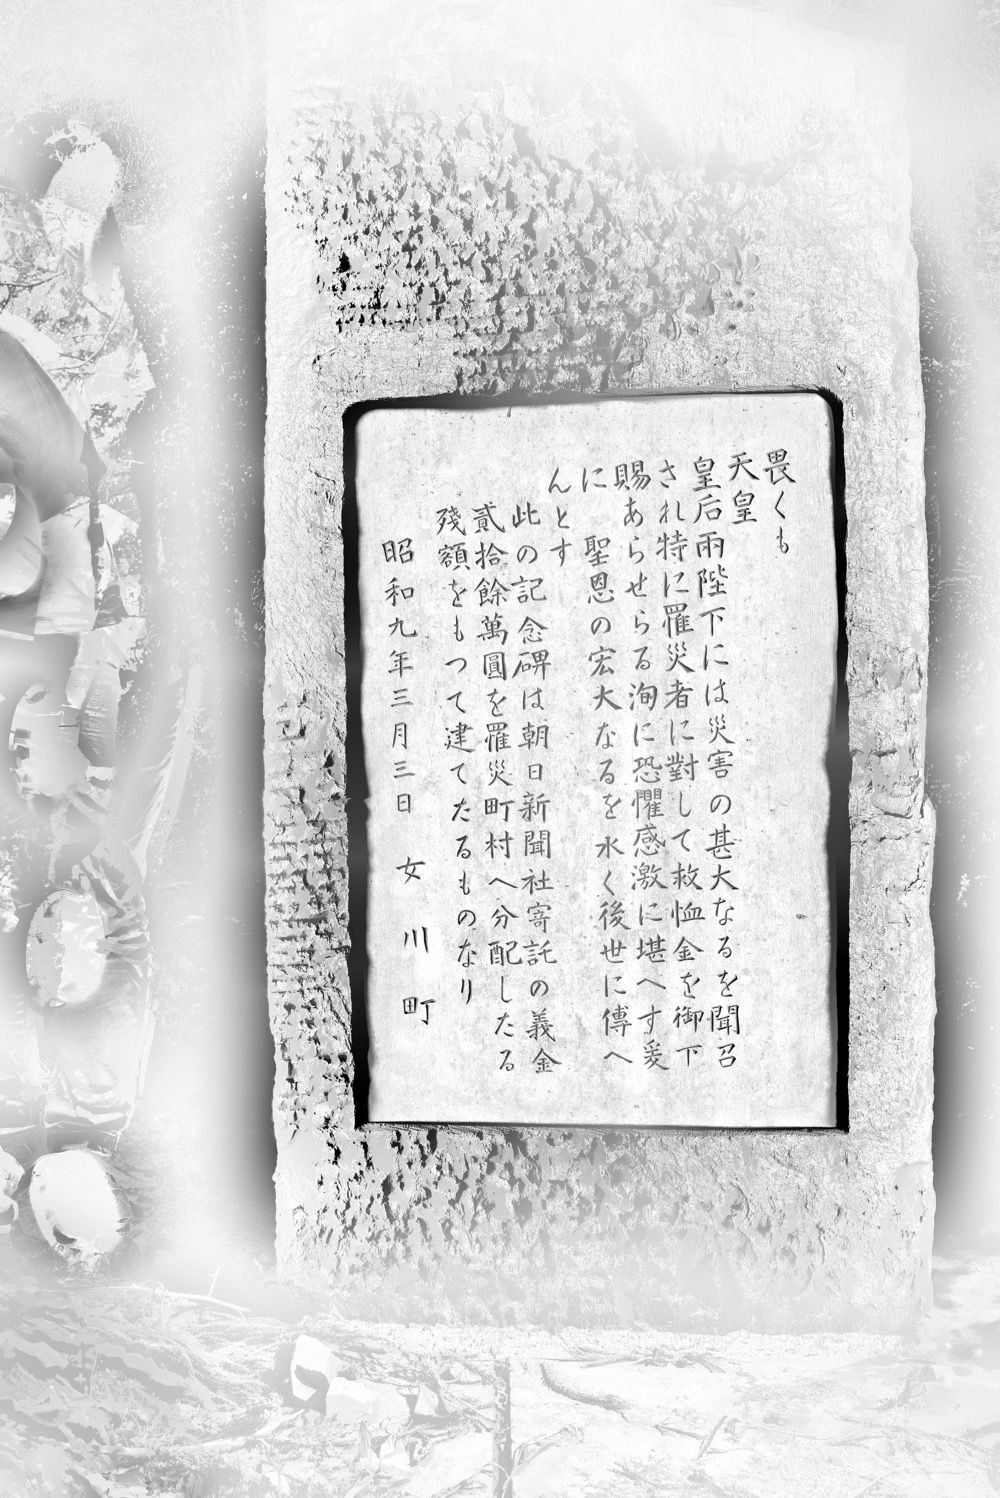 畏くも
天皇
皇后兩陛下には災害の甚大なるを聞召
され特に罹災者に對して救恤金を御下
賜あらせらる洵に恐懼感激に堪へす爰
に　聖恩の宏大なるを永く後世に傳へ
んとす
此の記念碑は朝日新聞社寄託の義金
貳拾餘萬圓を罹災町村へ分配したる
殘額をもつて建てたるものなり
昭和九年三月三日　女川町